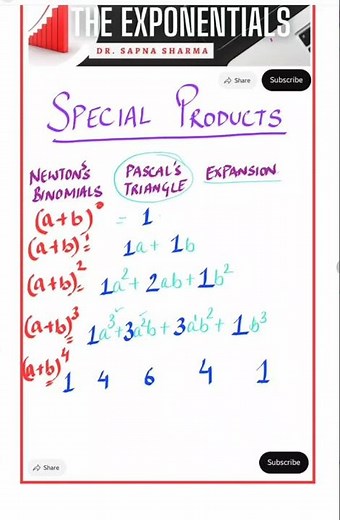 THE EXPONENTIALS
DR. SAPNA SHARMA
Share
Subscribe
SPECIAL PRODUCTS
NEWTON'S BINOMIALS
PASCAL'S TRIANGLE
EXPANSION
(a+b)⁰ = 1
(a+b)¹ 1a + 1b
(a+b)² 1a² + 2ab + 1b²
(a+b)³ 1a³ + 3a²b + 3ab² + 1b³
(a+b)⁴ 1 4 6 4 1
Share
Subscribe